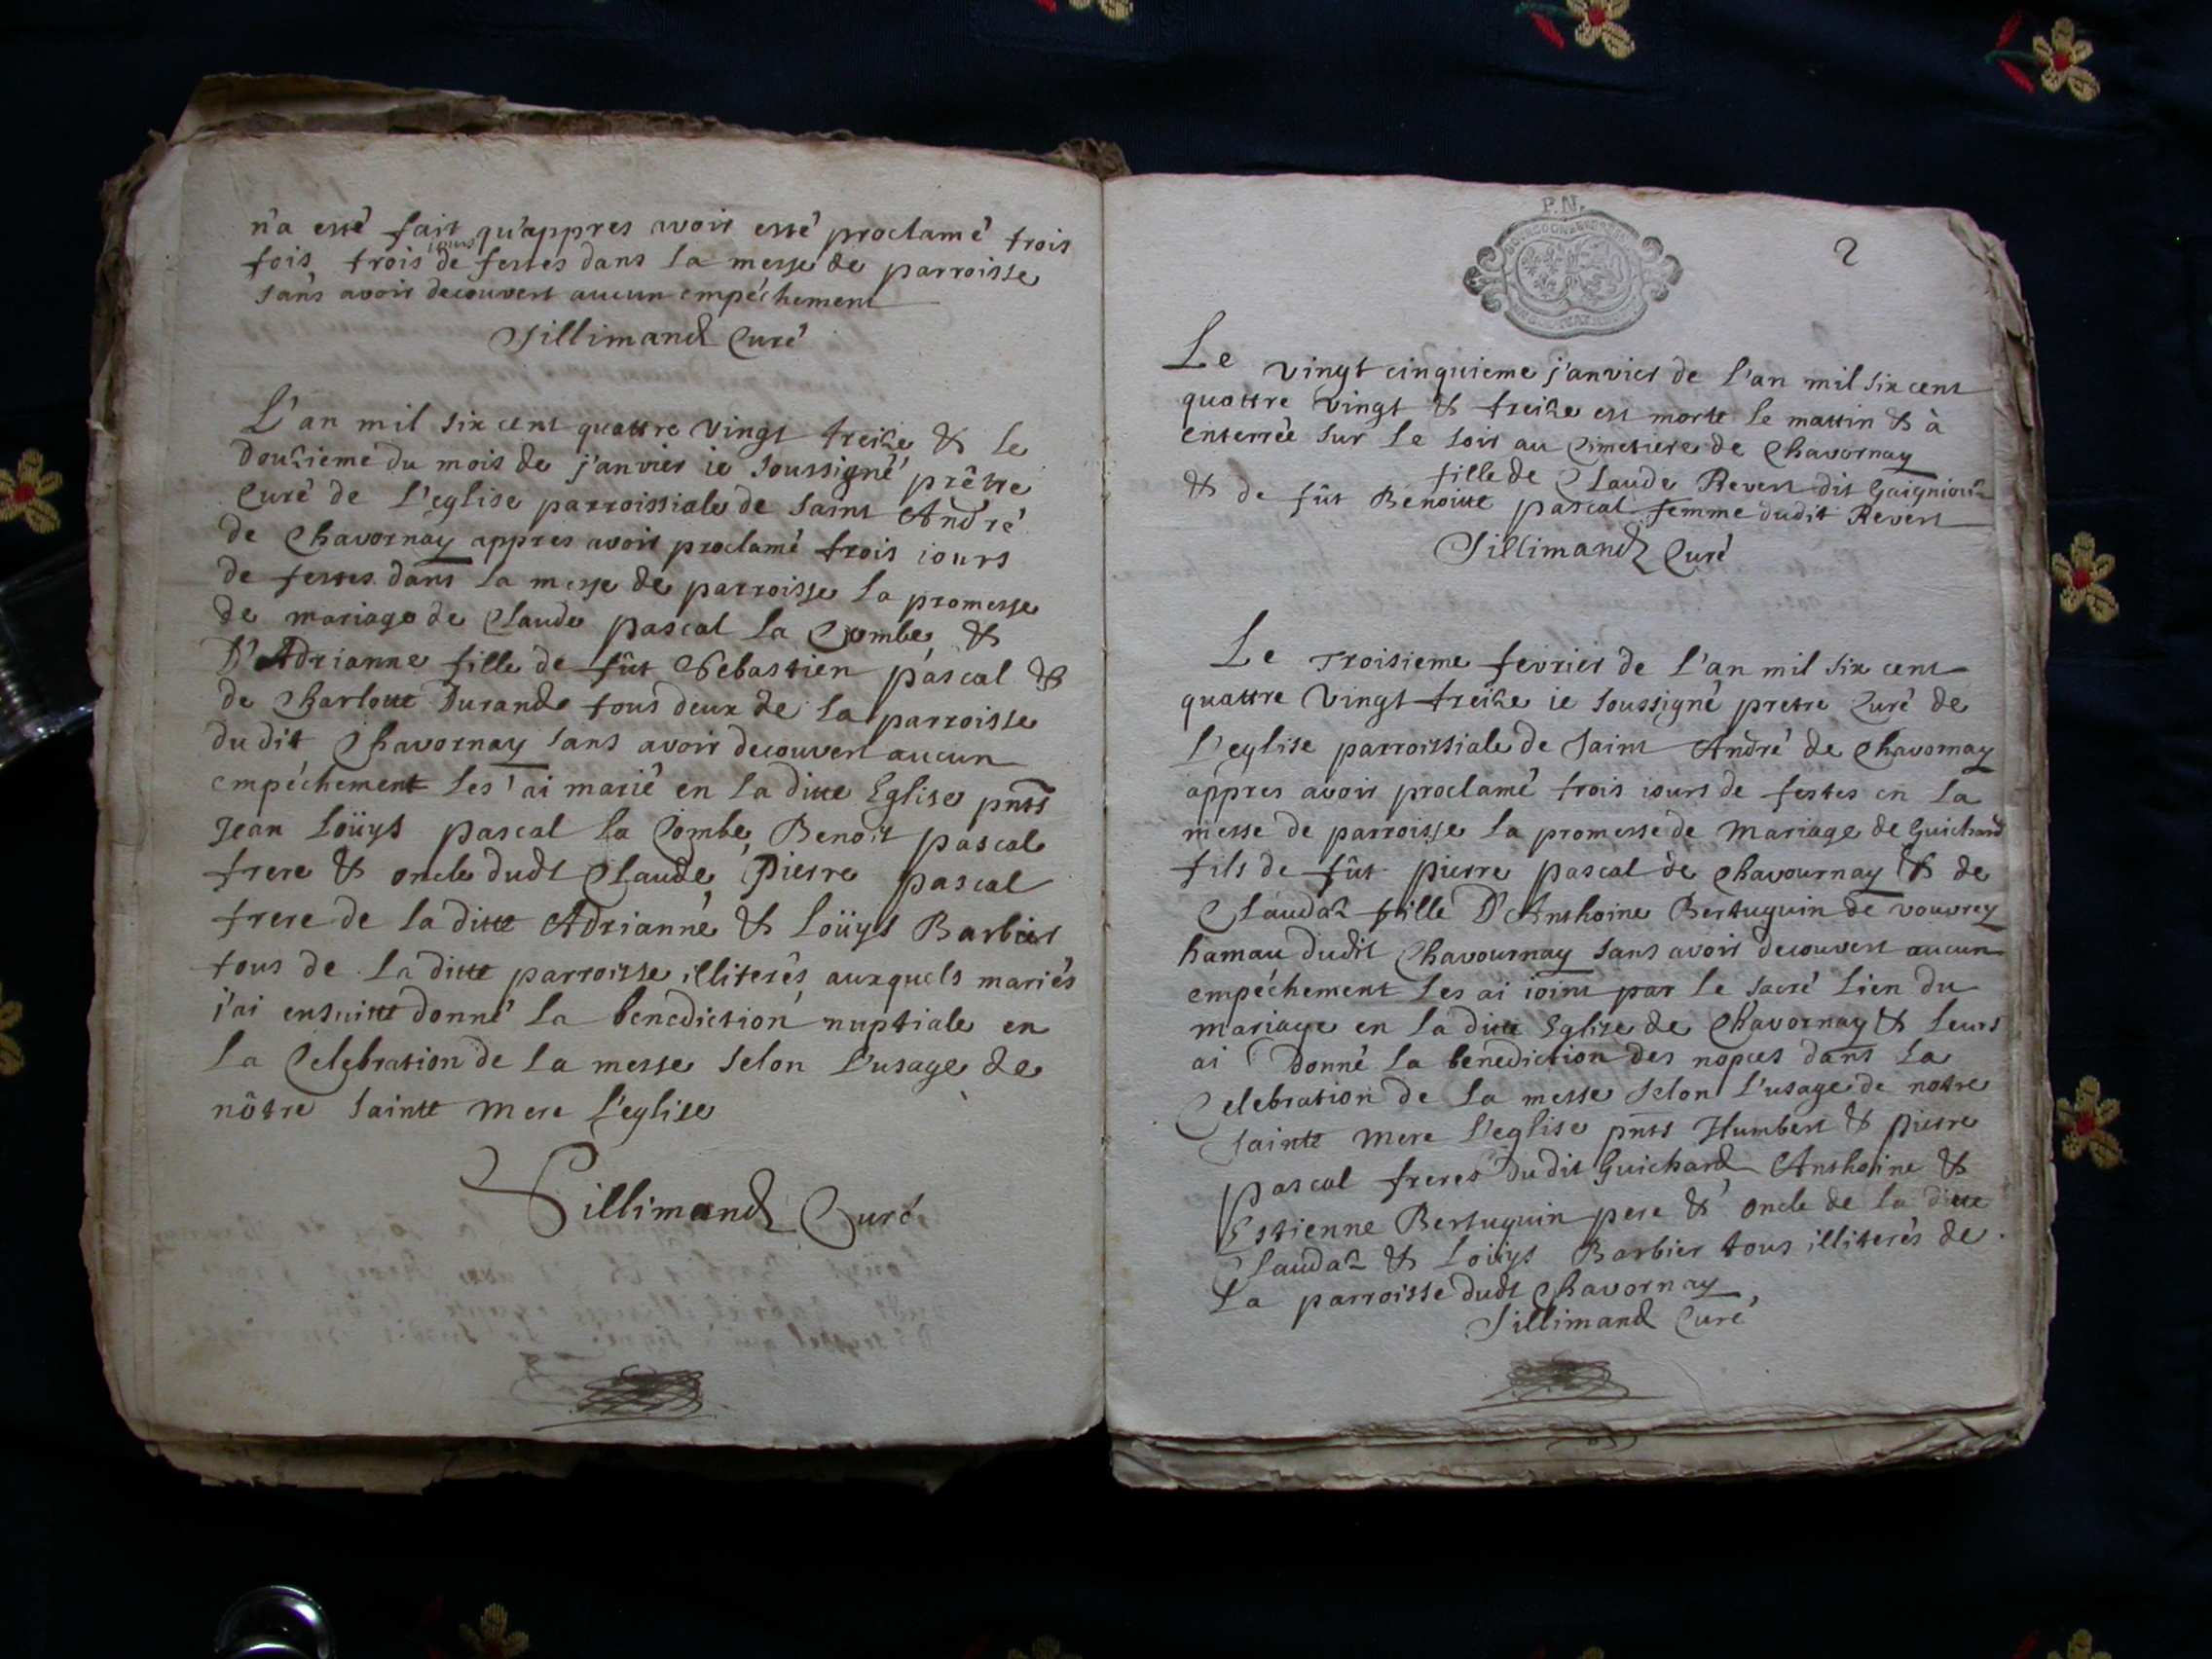 n'a esté fait qu'appres avoir esté proclamé trois
jours
fois trois de festes dans la messe de parroisse
sans avoir decouvert aucun empéchement
Sillimand Curé
L'an mil six cent quattre vingt treize & le
douzieme du mois de j'anvier ie soussigné prêtre
Curé de l'eglise parroissiale de saint André
de Chavornay appres avoir proclamé trois iours
de festes dans la messe de parroisse la promesse
de mariage de Claude pascal la Combe, &
D'Adrianne fille de fût Sebastien pascal &
de Charlotte Durand tous deux de la parroisse
du dit Chavornay sans avoir decouvert aucun
empéchement les ai marié en la ditte Eglise pnts
Jean Loüys pascal la Combe, Benoit pascal
frere & oncle dudt Claude, Pierre pascal
frere de la ditte Adrianne & Loüys Barbier
tous de la ditte parroisse illiterés auxquels mariés
j'ai ensuitte donné la benediction nuptiale en
la Celebration de la messe selon l'usage de
nôtre sainte mere l'eglise
Sillimand Curé
P.N.
2
Le vingt cinquieme j'anvier de l'an mil six cent
quattre vingt & treize est morte le mattin & à
enterrée sur le soir au Cimetiere de Chavornay
fille de Claude Revert dit Gaigniour
& de fût Benoitte pascal femme dudit Revert
Sillimand Curé
Le Troisieme fevrier de l'an mil six cent
quattre vingt treize ie soussigné pretre Curé de
l'eglise parroissiale de saint André de Chavornay
appres avoir proclamé trois iours de festes en la
messe de parroisse la promesse de mariage de Guichard
fils de fût pierre pascal de Chavournay & de
Claudaz fille D'Anthoine Bertuquin de vouvrey
hamau dudit Chavournay sans avoir decouvert aucun
empéchement les ai ioint par le sacré lien du
mariage en la ditte Eglise de Chavornay & leurs
ai donné la benediction des nopces dans la
Celebration de la messe selon l'usage de notre
sainte mere l'eglise pnts Humbert & pierre
Pascal freres dudit Guichard, Anthoine &
Estienne Bertuquin pere & oncle de la ditte
Claudaz & Loüys Barbier tous illiterés de
la parroisse dudt Chavornay
Sillimand Curé